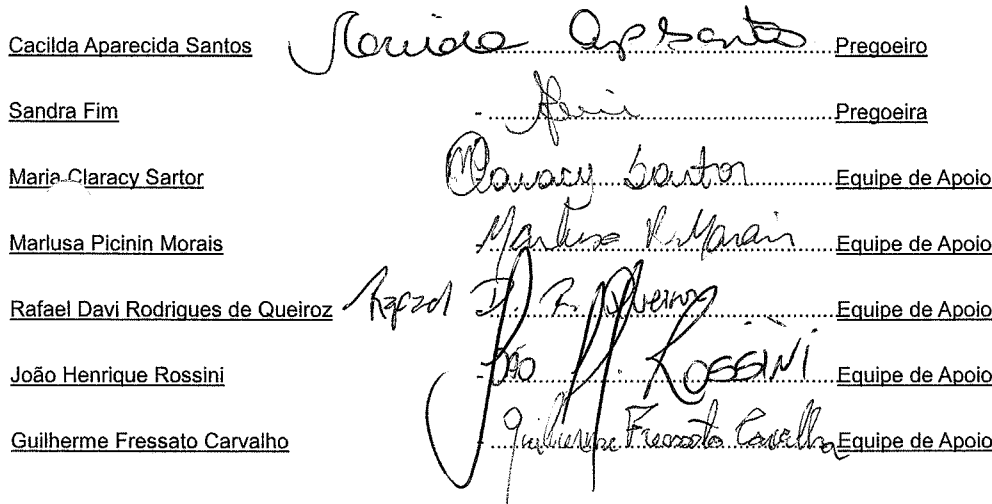 Cacilda Aparecida Santos Cacilda Ap Santos Pregoeiro
Sandra Fim - Pregoeira
Maria Claracy Sartor MClaracy Sartor Equipe de Apoio
Marlusa Picinin Morais - Marlusa P. Morais Equipe de Apoio
Rafael Davi Rodrigues de Queiroz Rafael D. R. Queiroz Equipe de Apoio
João Henrique Rossini - João H. ROSSINI Equipe de Apoio
Guilherme Fressato Carvalho - Guilherme Fressato Carvalho Equipe de Apoio